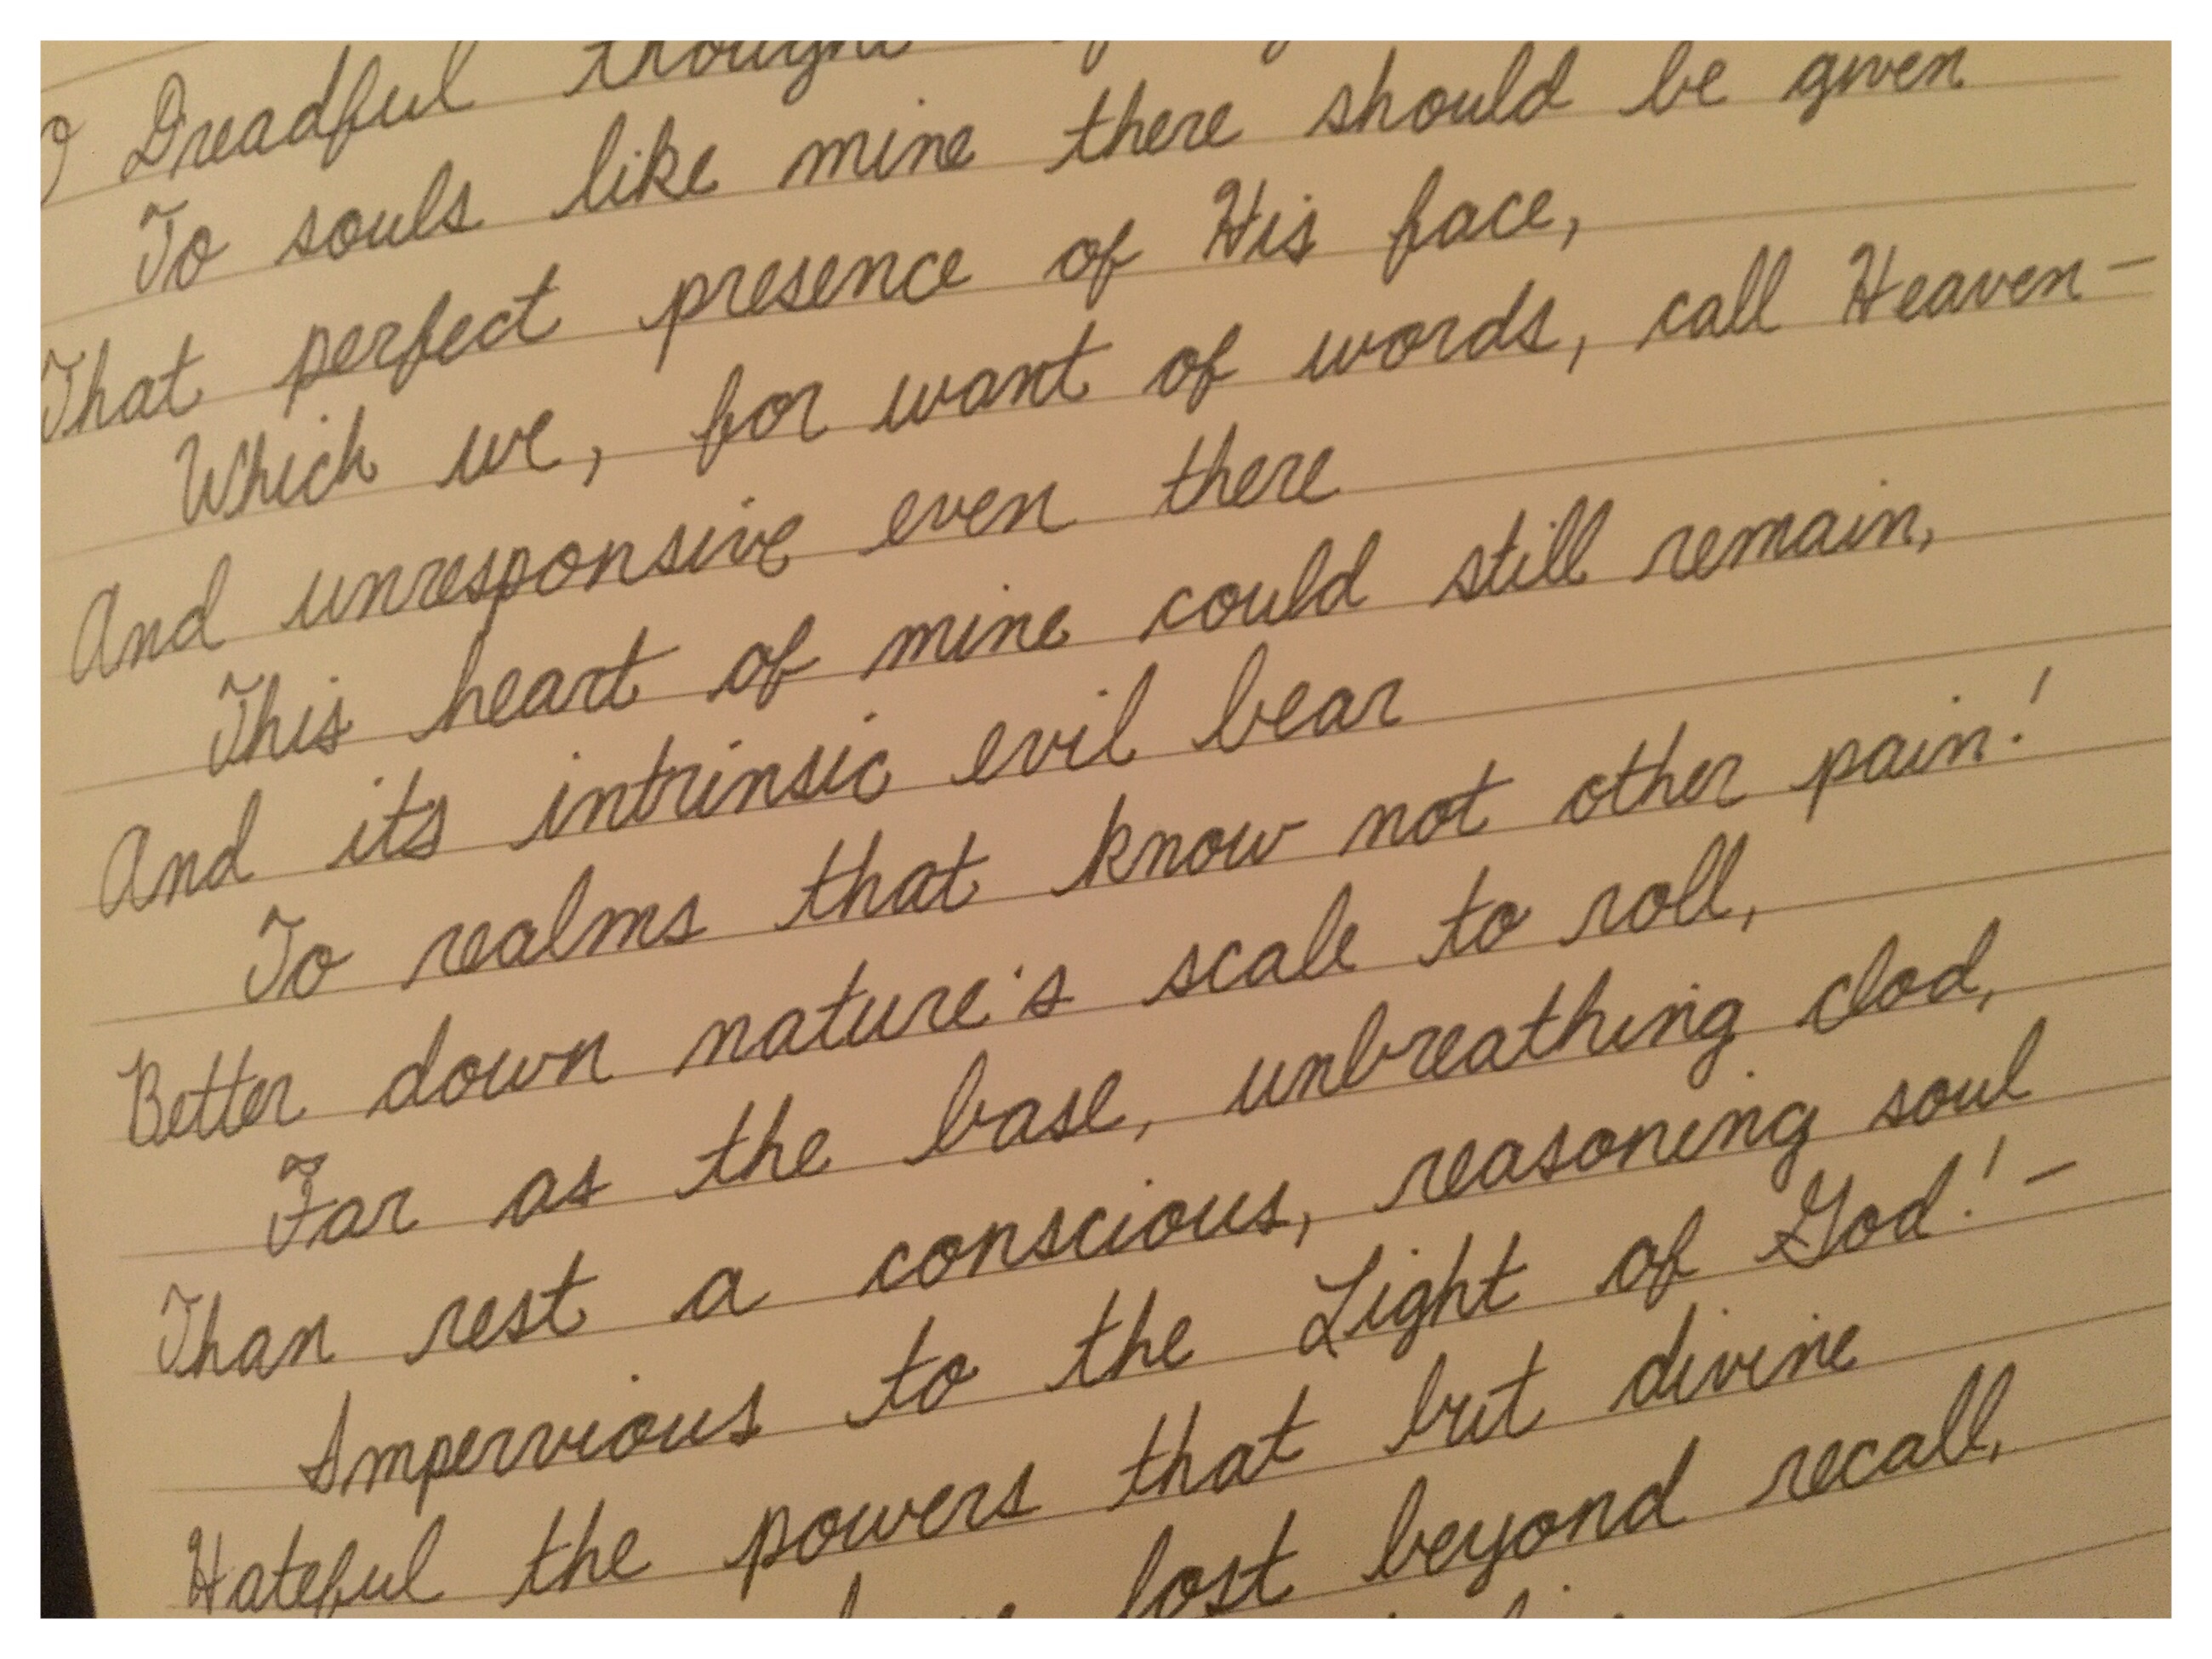 O Dreadful thought
To souls like mine there should be given
That perfect presence of His face,
Which we, for want of words, call Heaven—
And unresponsive even there
This heart of mine could still remain,
And its intrinsic evil bear
To realms that know not other pain!
Better down nature's scale to roll,
Far as the base, unbreathing clod,
Than rest a conscious, reasoning soul
Impervious to the Light of God!—
Hateful the powers that but divine
lost beyond recall,